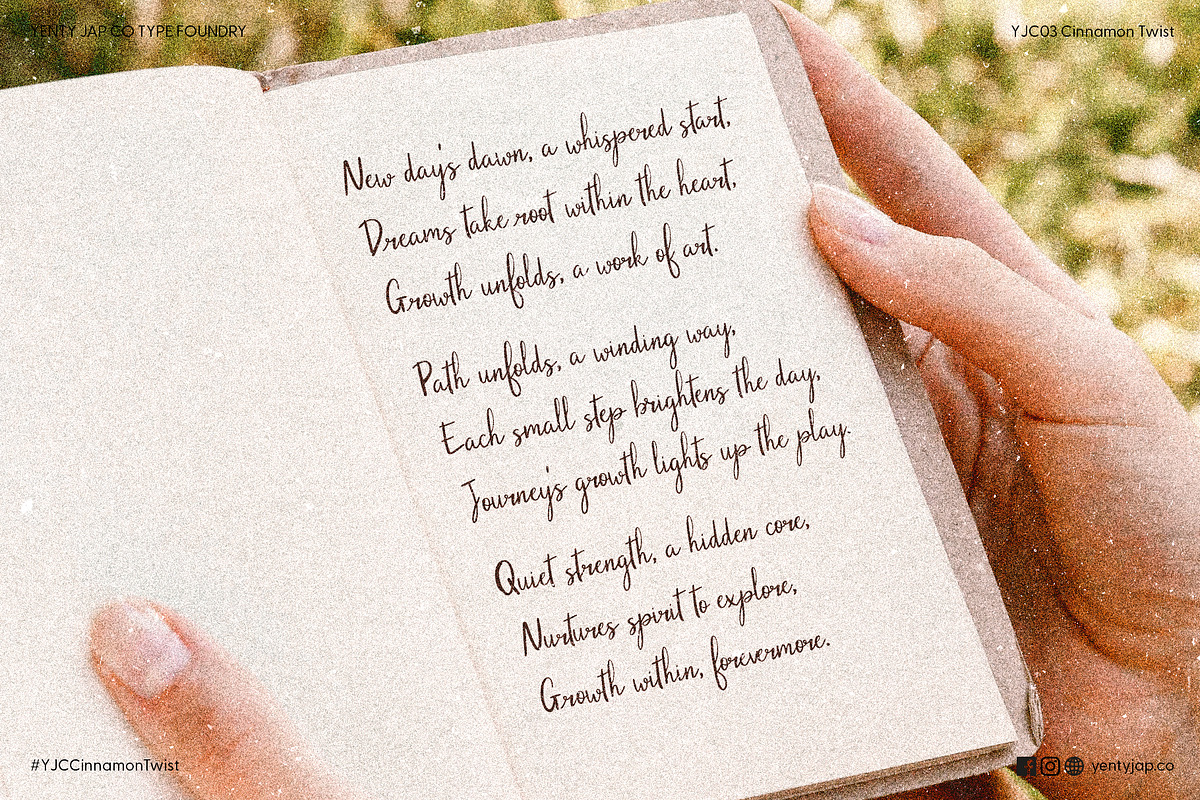 YENTY JAP CO TYPE FOUNDRY
YJC03 Cinnamon Twist
New day's dawn, a whispered start,
Dreams take root within the heart,
Growth unfolds, a work of art.
Path unfolds, a winding way,
Each small step brightens the day,
Journey's growth lights up the play.
Quiet strength, a hidden core,
Nurtures spirit to explore,
Growth within, forevermore.
#YJCCinnamonTwist
yentyjap.co